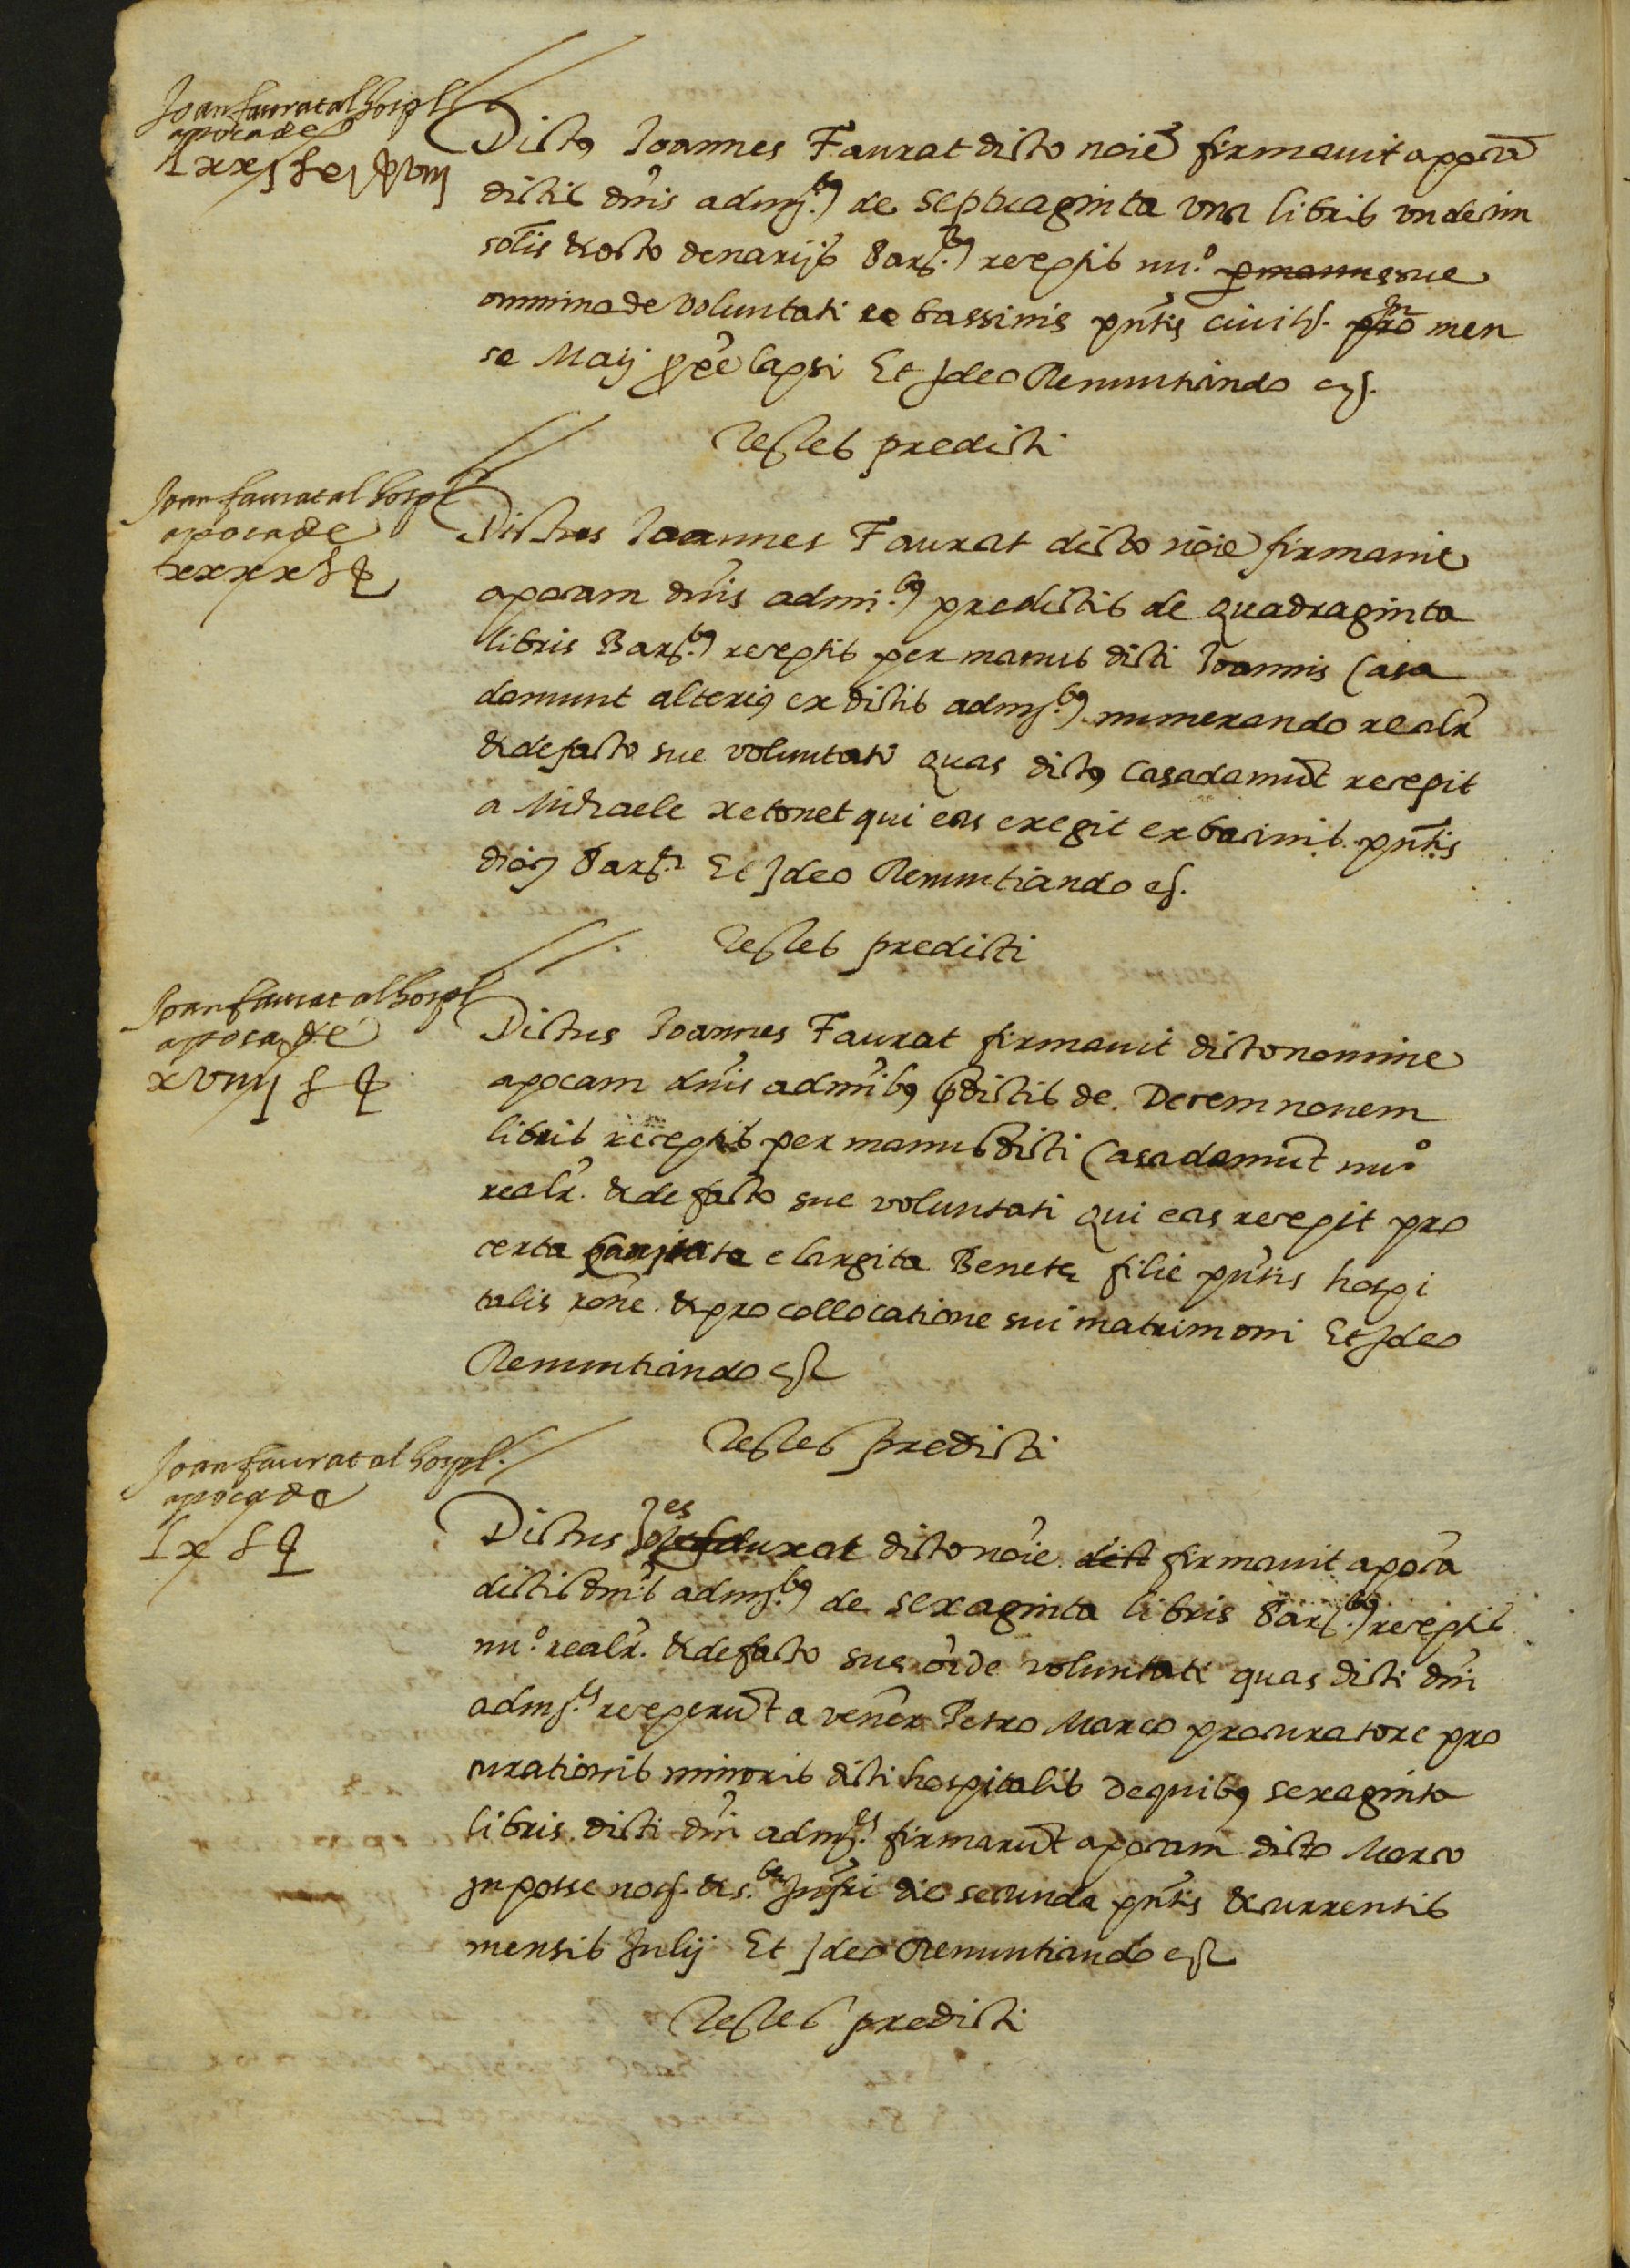 Joan faurat al hospl
apoca de
lxxj ł xj ß viij
Dictꝰ Joannes Faurat dicto noīe firmavit apocā
dictis dn̄is admj.bꝰ de septuaginta una libris undecim
solis & octo denarijs Barc.bꝰ receptis nu.º ꝑ manus sue
omnimode voluntati ex bassinis pn̄tis civits. pro In men
se Maij ꝓxē lapsi Et Ideo Renuntiando etc.
Testes predicti
Joan faurat al hospl
apoca de
xxxx ł
Dictus Joannes Faurat dicto noīe firmavit
apocam dn̄is admi.bꝰ predictis de quadraginta
libris Barc.bꝰ receptis per manus dicti Joannis Casa
damunt alteriꝰ ex dictis admj.bꝰ numerando realr̄
& de facto sue voluntati quas dictꝰ Casadamūt recepit
a Michaele xetonet qui eas exegit ex bacinis pn̄tis
Barc.
Et Ideo Renuntiando etc.
Testes predicti
Joan faurat al hospl
apoca de
xviiij ł
Dictus Joannes Faurat firmavit dicto nomine
apocam dn̄is admībꝰ p̄dictis de Decem novem
libris receptis per manus dicti Casadamūt nu.º
realr̄. & de facto sue voluntati qui eas recepit pro
certa elargita Benete filie pn̄tis hospi
talis rōne & pro collocatione sui matrimoni Et Ideo
Renuntiando etc
Testes predicti
Joan faurat al hospl.
apoca de
lx ł
Dictus Joēs faurat dicto noīe dict firmavit apocā
dictis dn̄is admj.bꝰ de sexaginta libris Barc.bꝰ receptis
nu.º realr̄. & de facto sue oīde voluntati quas dicti dn̄i
admj.es receperūt a venēr Petro Marco procuratore pro
curationis minoris dicti hospitalis de quibꝰ sexaginta
libris dicti dn̄i admj.es firmarūt apocam dicto Marco
In posse not. & s.be Infri die secunda pn̄tis & currentis
mensis Julij Et Ideo Renuntiando etc
Testes predicti